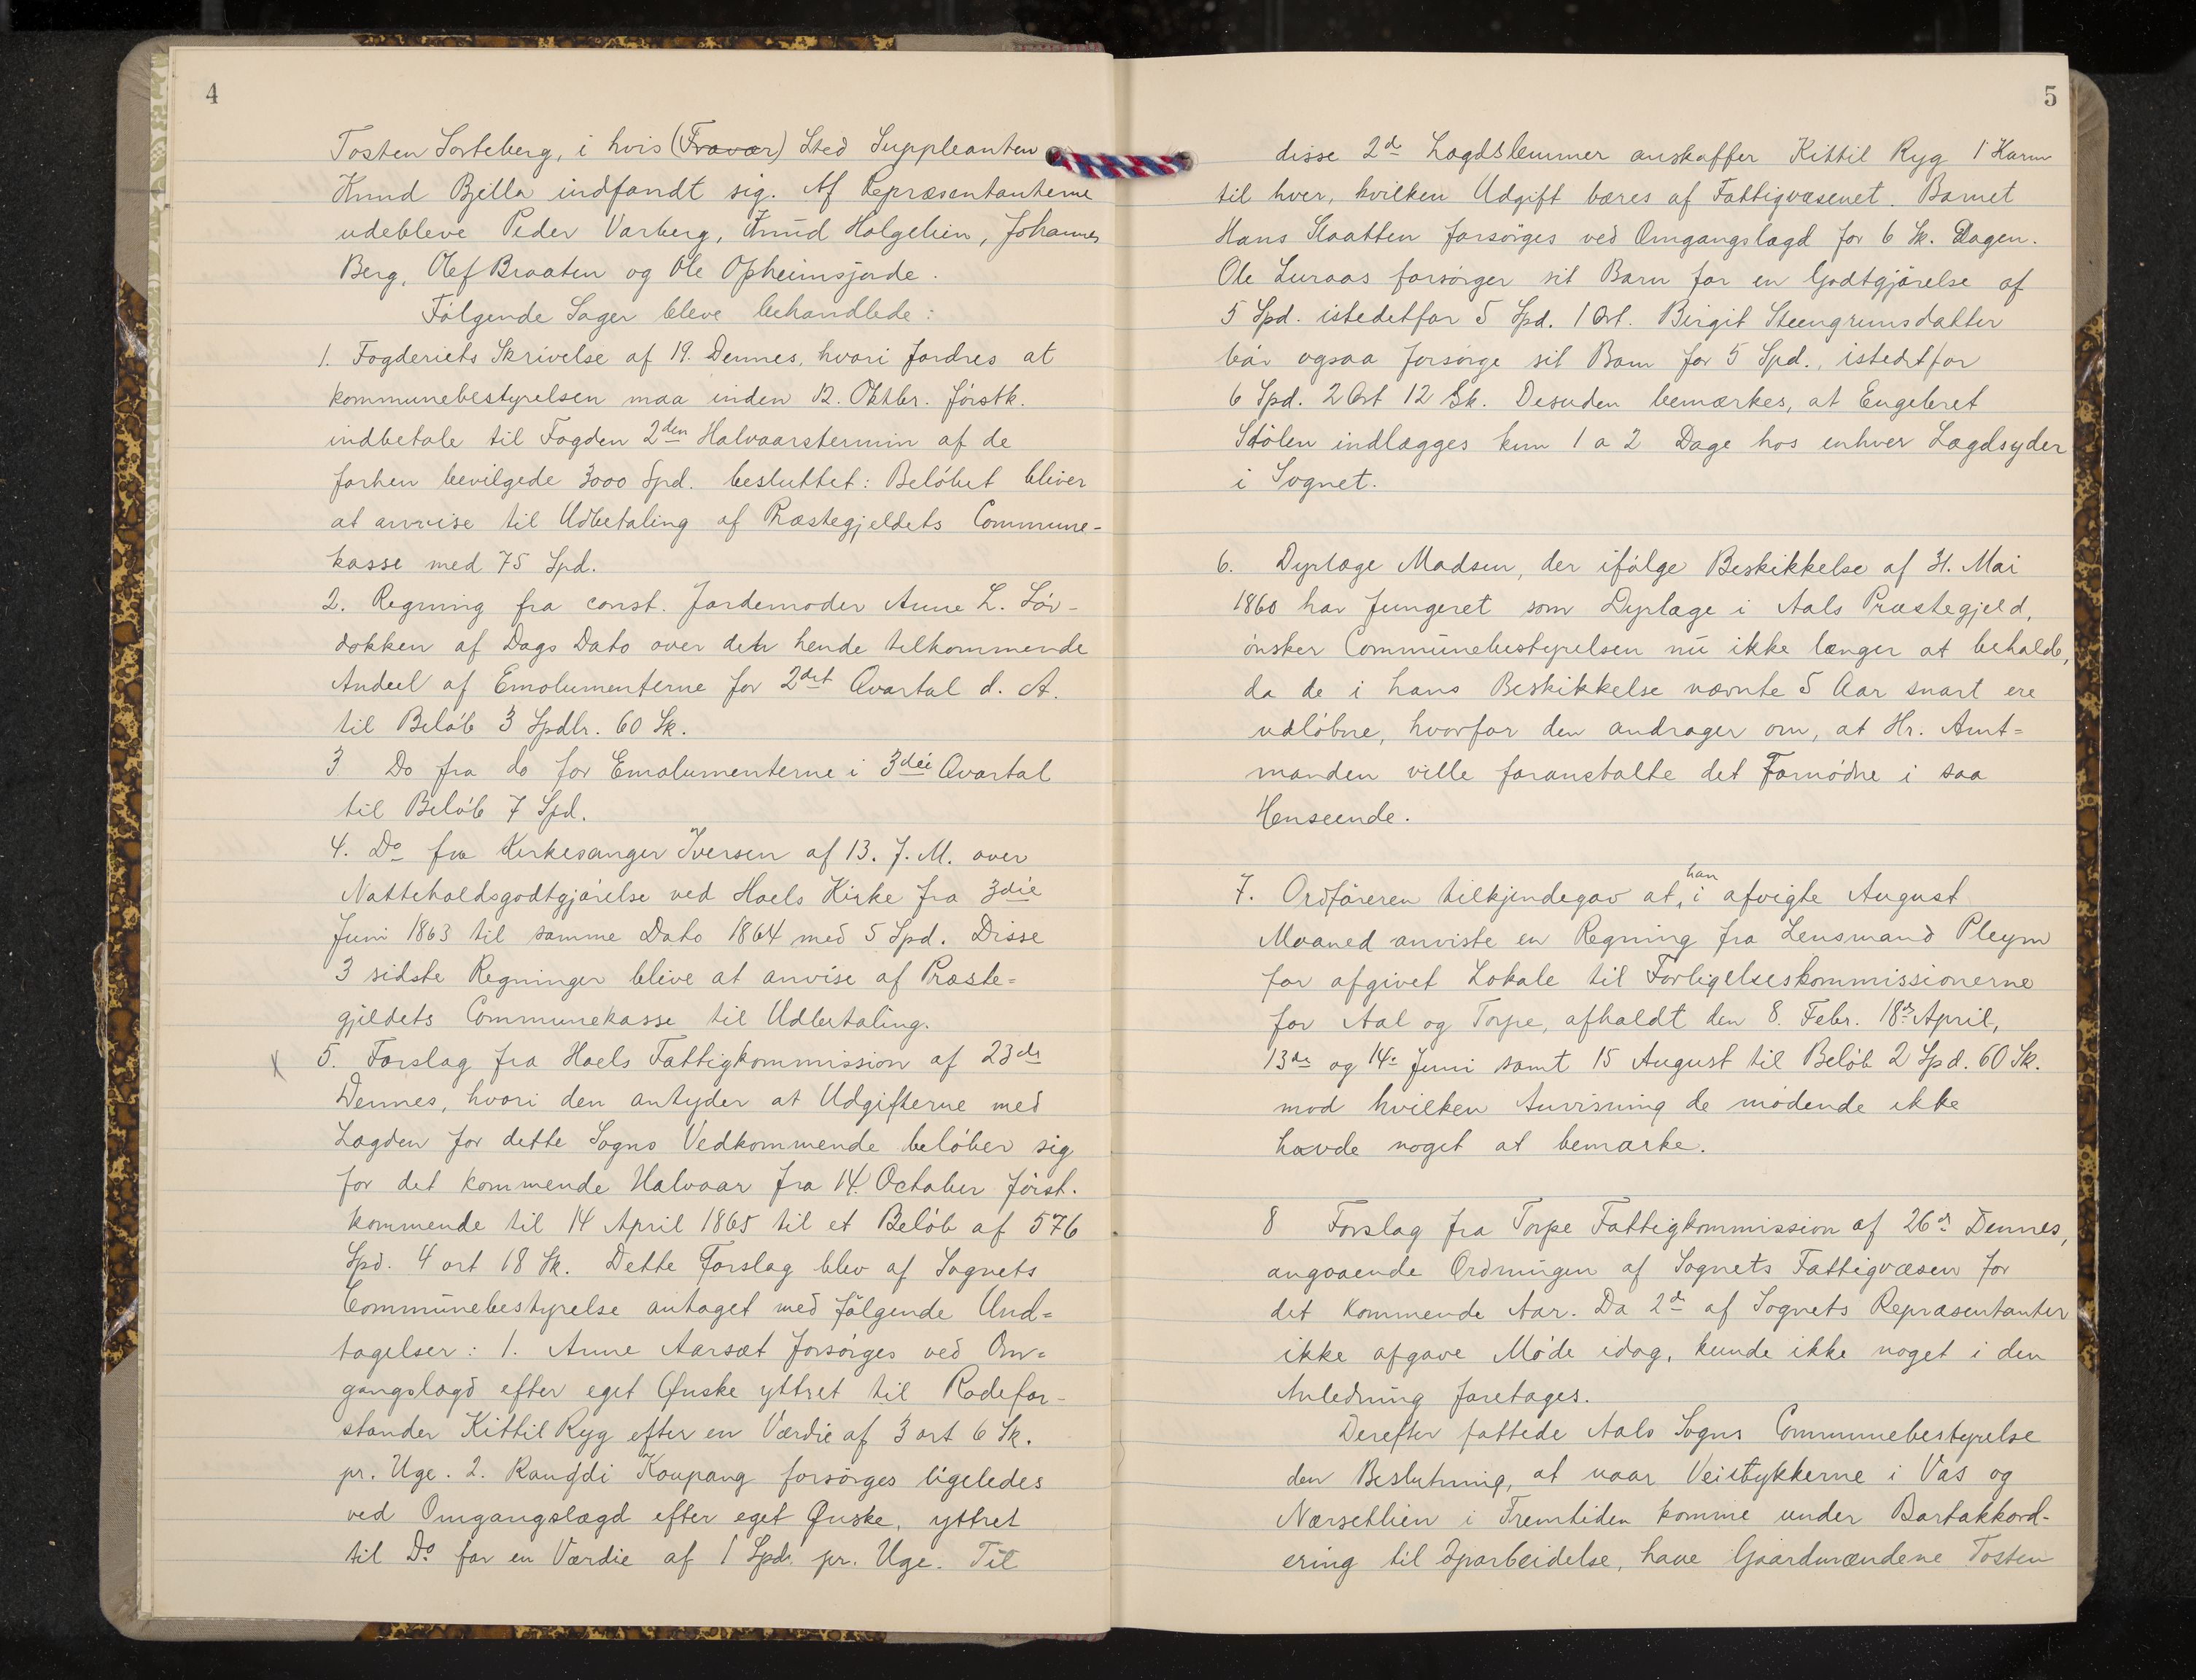 4
Tosten Sorteberg, i hvis (Fravær) Sted Suppleanten
Knud Bjella indfandt sig. Af Repræsentanterne
udebleve Peder Varberg, Knud Holgehien, Johannes
Berg, Olef Braaten og Ole Opheimsjorde.
Følgende Sager bleve behandlede:
1. Fogderiets Skrivelse af 19. Dennes, hvori fordres at
kommunebestyrelsen maa inden 12. Oktbr. førstk.
indbetale til Fogden 2den Halvaarstermin af de
forhen bevilgede 3000 Spd. besluttet: Beløbet bliver
at anvise til Udbetaling af Præstegjeldets Commune-
kasse med 75 Spd.
2. Regning fra const. Jordemoder Anne L. Løv-
dokken af Dags Dato over den hende tilkommende
Andeel af Emolumenterne for 2det Qvartal d. A.
til Beløb 3 Spdlr. 60 Sk.
3 Do fra do for Emolumenterne i 3die Qvartal
til Beløb 7 Spd.
4. Do fra Kirkesanger Iversen af 13. f. M. over
Natteholdsgodtgjørelse ved Hoels Kirke fra 3die
Juni 1863 til samme Dato 1864 med 5 Spd. Disse
3 sidste Regninger blive at anvise af Præste=
gjeldets Communekasse til Udbetaling.
X 5. Forslag fra Hoels Fattigkommission af 23de
Dennes, hvori den antyder at Udgifterne med
Lægden for dette Sogns Vedkommende beløber sig
for det kommende Halvaar fra 14. October først.
kommende til 14 April 1865 til et Beløb af 576
Spd. 4 ort 18 Sk. Dette Forslag blev af Sognets
Communebestyrelse antaget med følgende Und=
tagelser: 1. Anne Aarsæt forsørges ved Om=
gangslægd efter eget Ønske yttret til Rodefor-
stander Kittil Ryg efter en Værdie af 3 ort 6 Sk.
pr. Uge. 2. Rangdi Koupang forsørges ligeledes
ved Omgangslægd efter eget Ønske, yttret
til Do for en Værdie af 1 Spd. pr. Uge. Til
5
disse 2de Lægdslemmer anskaffer Kittil Ryg 1 Karm
til hver, hvilken Udgift bæres af Fattigvæsenet. Barnet
Hans Slaatten forsørges ved Omgangslægd for 6 Sk. Dagen.
Ole Luraas forsørger sit Barn for en Godtgjørelse af
5 Spd. istedetfor 5 Spd. 1 Ort. Birgit Steengrimsdatter
bør ogsaa forsørge sit Barn for 5 Spd., istedetfor
6 Spd. 2 Ort 12 Sk. Desuden bemærkes, at Engebret
Stølen indlægges kun 1 a 2 Dage hos enhver Lægdsyder
i Sognet.
6. Dyrlæge Madsen, der ifølge Beskikkelse af 31. Mai
1860 har fungeret som Dyrlæge i Aals Præstegjeld,
ønsker Communebestyrelsen nu ikke længer at beholde,
da de i hans Beskikkelse nævnte 5 Aar snart ere
udløbne, hvorfor den andrager om, at Hr. Amt=
manden ville foranstalte det Fornødne i saa
Henseende.
7. Ordføreren tilkjendegav at, han i afvigte August
Maaned anviste en Regning fra Lensmand Pleym
for afgivet Lokale til Forligelseskommissionerne
for Aal og Torpe, afholdt den 8. Febr. 18de April,
13de og 14e Juni samt 15 August til Beløb 2 Spd. 60 Sk.
mod hvilken Anvisning de mødende ikke
havde noget at bemærke.
8 Forslag fra Torpe Fattigkommission af 26de Dennes,
angaaende Ordningen af Sognets Fattigvæsen for
det kommende Aar. Da 2de af Sognets Repræsentanter
ikke afgave Møde idag, kunde ikke noget i den
Anledning foretages.
Derefter fattede Aals Sogns Communebestyrelse
den Beslutning, at naar Veistykkerne i Vas og
Nærsetlien i Fremtiden komme under Bortakkord-
ering til Oparbeidelse, have Gaardmændene Tosten